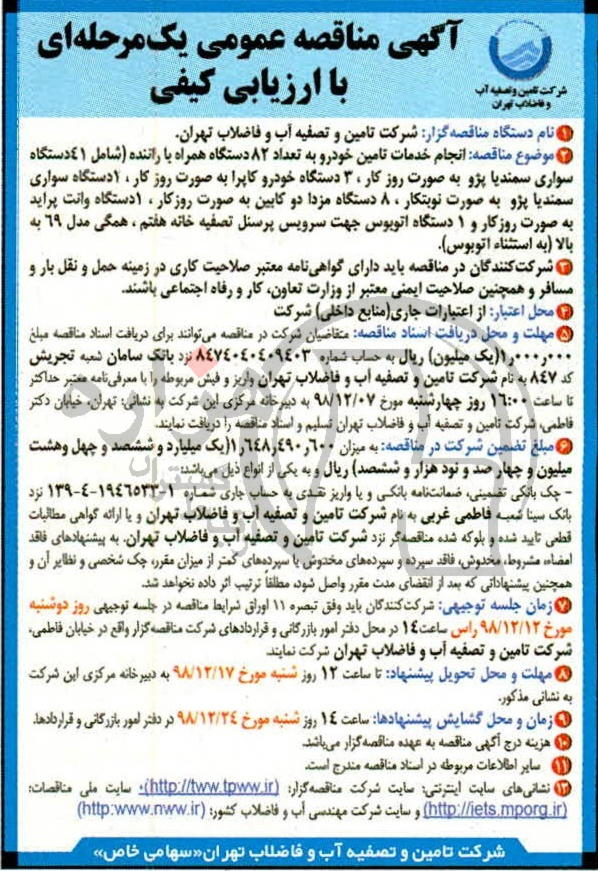 آگهی مناقصه عمومی یک‌مرحله‌ای
با ارزیابی کیفی
شرکت تامین و تصفیه آب
و فاضلاب تهران
۱ نام دستگاه مناقصه‌گزار: شرکت تامین و تصفیه آب و فاضلاب تهران.
۲ موضوع مناقصه: انجام خدمات تامین خودرو به تعداد ۸۲ دستگاه همراه با راننده (شامل ۴۱ دستگاه
سواری سمندیا پژو به صورت روز کار ، ۳ دستگاه خودرو کاپرا به صورت روز کار ، ۱ دستگاه سواری
سمندیا پژو به صورت نوبتکار ، ۸ دستگاه مزدا دو کابین به صورت روزکار ، ۱ دستگاه وانت پراید
به صورت روزکار و ۱ دستگاه اتوبوس جهت سرویس پرسنل تصفیه خانه هفتم ، همگی مدل ۶۹ به
بالا (به استثناء اتوبوس).
۳ شرکت‌کنندگان در مناقصه باید دارای گواهی‌نامه معتبر صلاحیت کاری در زمینه حمل و نقل بار و
مسافر و همچنین صلاحیت ایمنی معتبر از وزارت تعاون، کار و رفاه اجتماعی باشند.
۴ محل اعتبار: از اعتبارات جاری(منابع داخلی) شرکت
۵ مهلت و محل دریافت اسناد مناقصه: متقاضیان شرکت در مناقصه می‌توانند برای دریافت اسناد مناقصه مبلغ
۱٫۰۰۰٫۰۰۰(یک میلیون) ریال به حساب شماره ۸۴۷۴۰۴۰۴۰۹۴۰۳ نزد بانک سامان شعبه تجریش
کد ۸۴۷ به نام شرکت تامین و تصفیه آب و فاضلاب تهران واریز و فیش مربوطه را با معرفی‌نامه معتبر حداکثر
تا ساعت ۱۶:۰۰ روز چهارشنبه مورخ ۹۸/۱۲/۰۷ به دبیرخانه مرکزی این شرکت به نشانی: تهران، خیابان دکتر
فاطمی، شرکت تامین و تصفیه آب و فاضلاب تهران تسلیم و اسناد مناقصه را دریافت نمایند.
۶ مبلغ تضمین شرکت در مناقصه: به میزان ۱٫۶۴۸٫۴۹۰٫۶۰۰(یک میلیارد و ششصد و چهل وهشت
میلیون و چهار صد و نود هزار و ششصد) ریال و به یکی از انواع ذیل می‌باشد:
- چک بانکی تضمینی، ضمانت‌نامه بانکی و یا واریز نقدی به حساب جاری شماره ۱-۱۹۴۶۵۳۳-۴-۱۳۹ نزد
بانک سینا شعبه فاطمی غربی به نام شرکت تامین و تصفیه آب و فاضلاب تهران و یا ارائه گواهی مطالبات
قطعی تایید شده و بلوکه شده مناقصه‌گر نزد شرکت تامین و تصفیه آب و فاضلاب تهران. به پیشنهادهای فاقد
امضاء، مشروط، مخدوش، فاقد سپرده و سپرده‌های مخدوش یا سپرده‌های کمتر از میزان مقرر، چک شخصی و نظایر آن و
همچنین پیشنهاداتی که بعد از انقضای مدت مقرر واصل شود، مطلقاً ترتیب اثر داده نخواهد شد.
۷ زمان جلسه توجیهی: شرکت‌کنندگان باید وفق تبصره ۱۱ اوراق شرایط مناقصه در جلسه توجیهی روز دوشنبه
مورخ ۹۸/۱۲/۱۲ راس ساعت ۱۴ در محل دفتر امور بازرگانی و قراردادهای شرکت مناقصه‌گزار واقع در خیابان فاطمی،
شرکت تامین و تصفیه آب و فاضلاب تهران شرکت نمایند.
۸ مهلت و محل تحویل پیشنهاد: تا ساعت ۱۲ روز شنبه مورخ ۹۸/۱۲/۱۷ به دبیرخانه مرکزی این شرکت
به نشانی مذکور.
۹ زمان و محل گشایش پیشنهادها: ساعت ۱۴ روز شنبه مورخ ۹۸/۱۲/۲۴ در دفتر امور بازرگانی و قراردادها.
۱۰ هزینه درج آگهی مناقصه به عهده مناقصه‌گزار می‌باشد.
۱۱ سایر اطلاعات مربوطه در اسناد مناقصه مندرج است.
۱۲ نشانی‌های سایت اینترنتی: سایت شرکت مناقصه‌گزار: (http://tww.tpww.ir)، سایت ملی مناقصات:
(http://iets.mporg.ir) و سایت شرکت مهندسی آب و فاضلاب کشور: (http:www.nww.ir)
شرکت تامین و تصفیه آب و فاضلاب تهران«سهامی خاص»